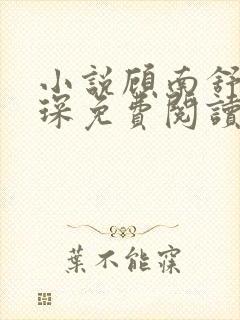 小説顧南舒
琛免費閱讀
葉不能寐